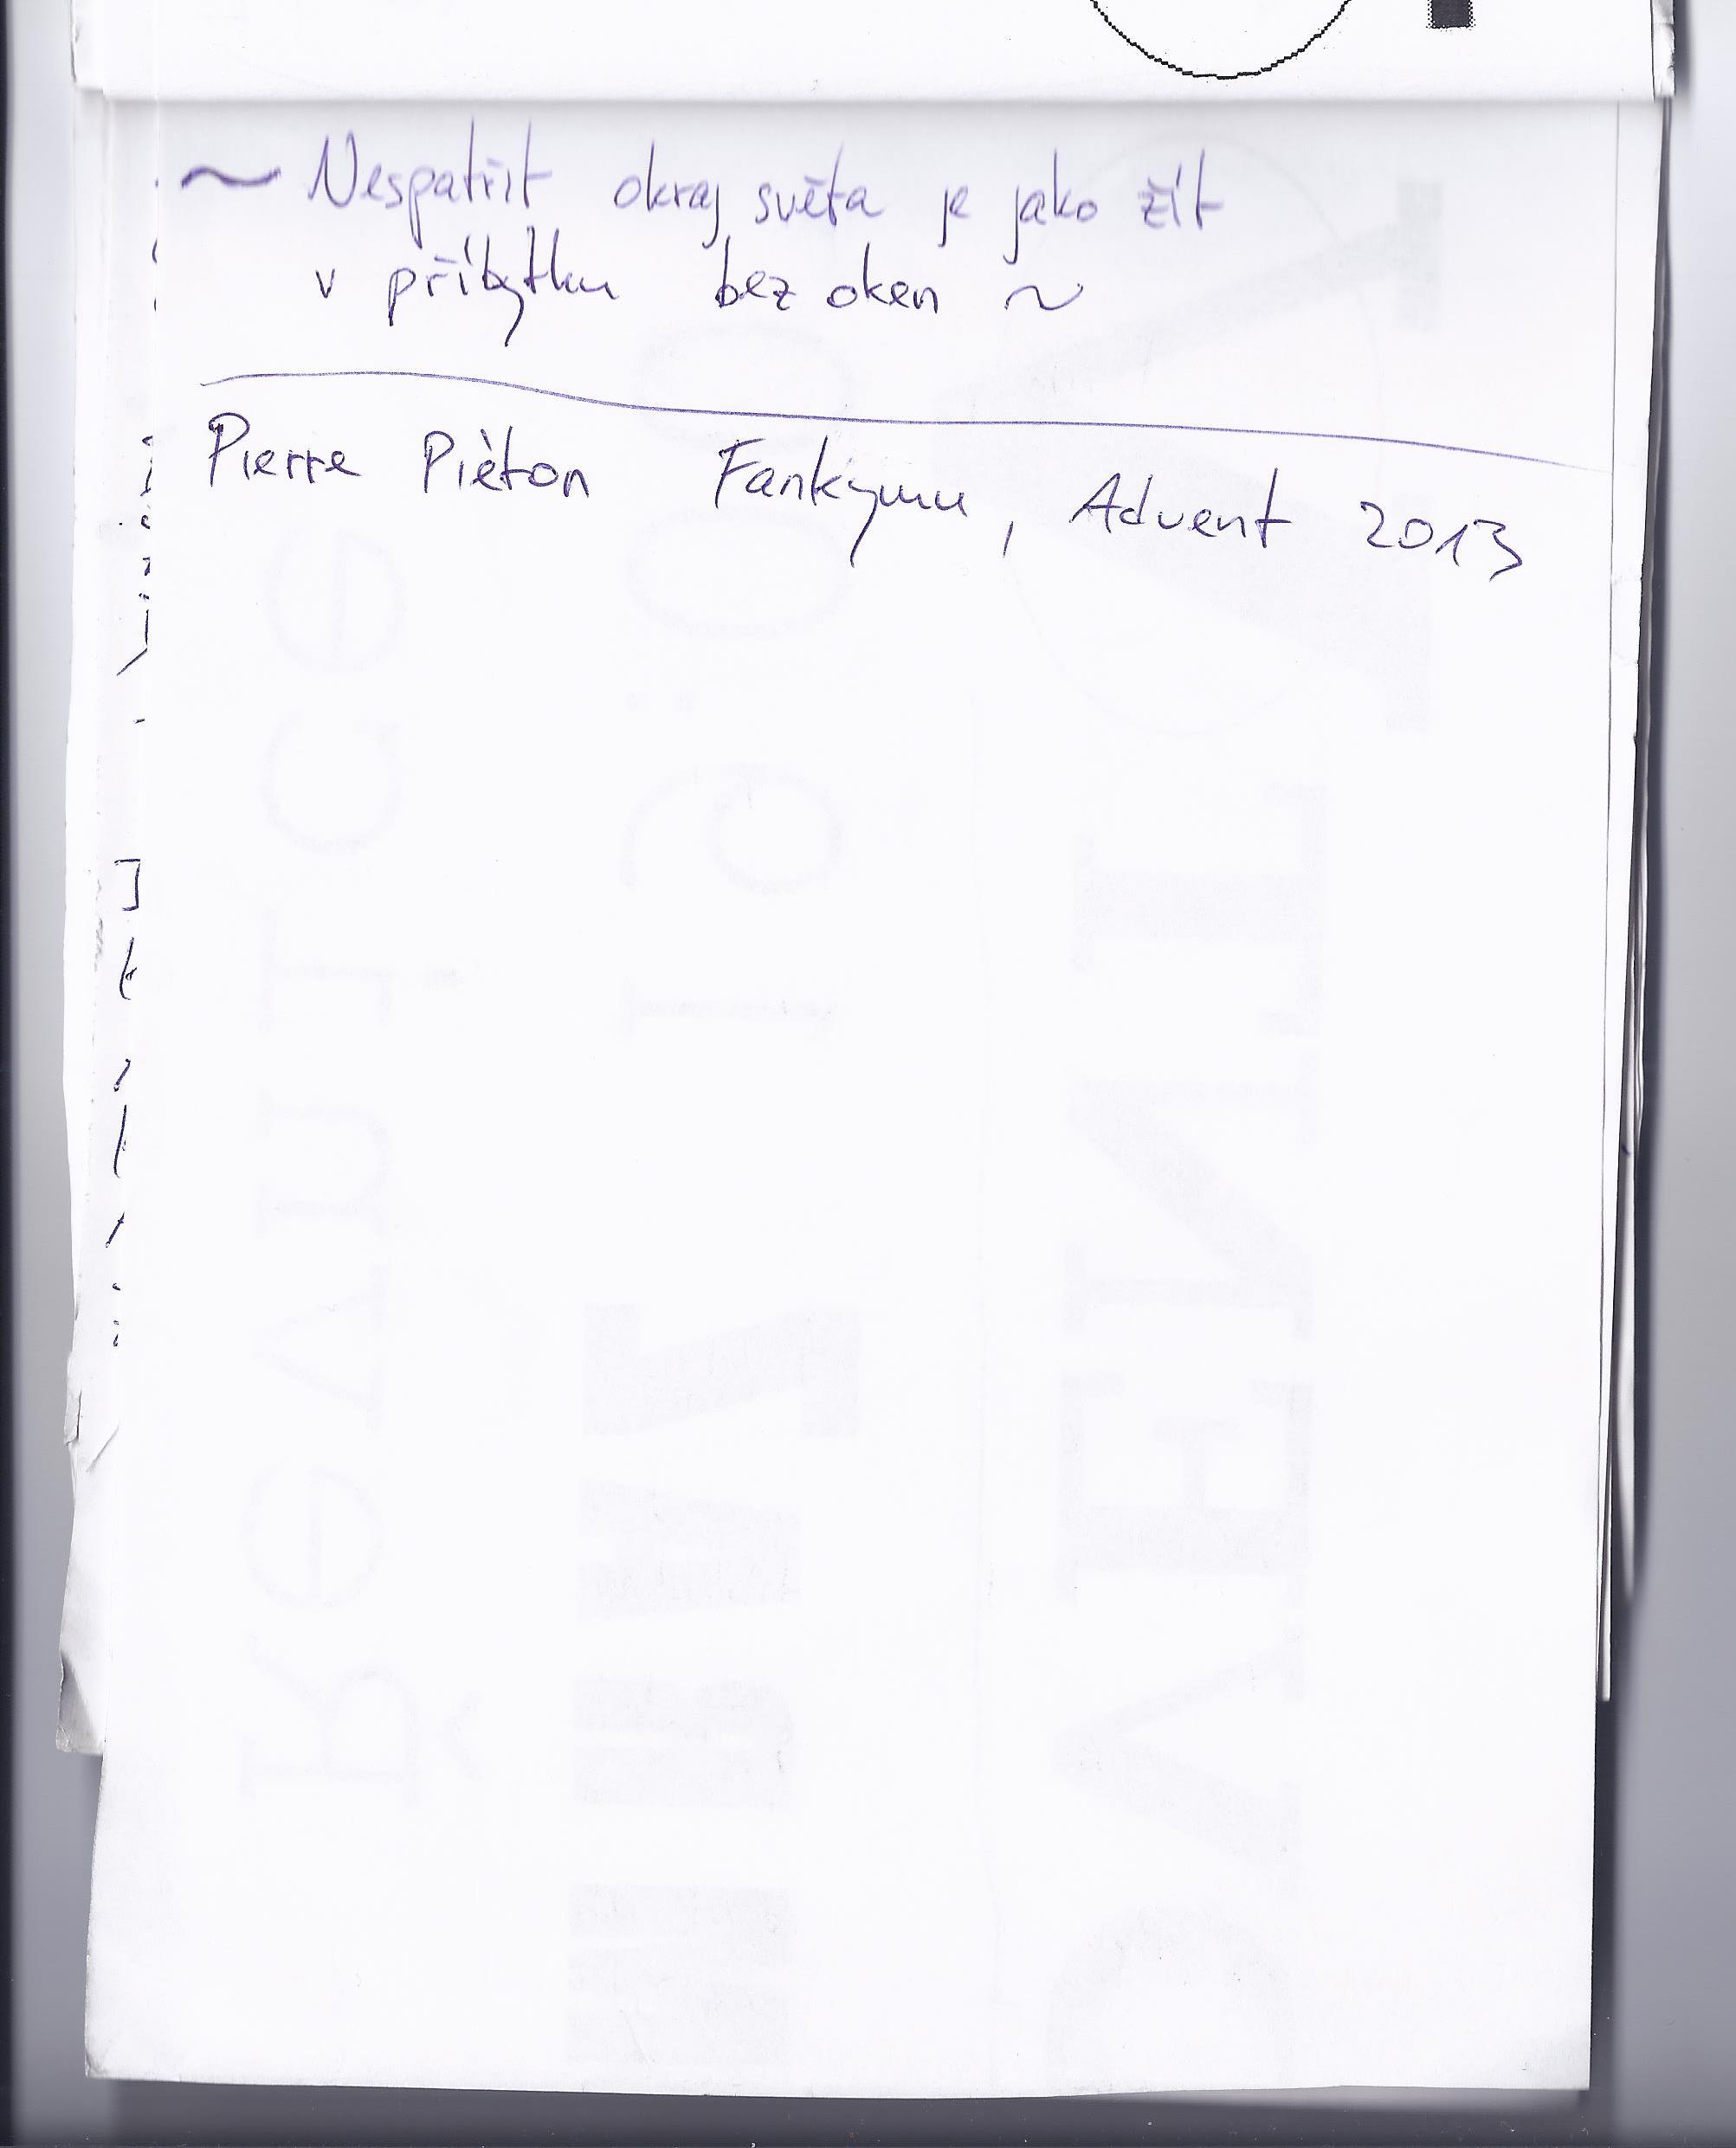 ~ Nespatřit okraj světa je jako žít
v příbytku bez oken ~
Pierre Pièton Fankymu, Advent 2013